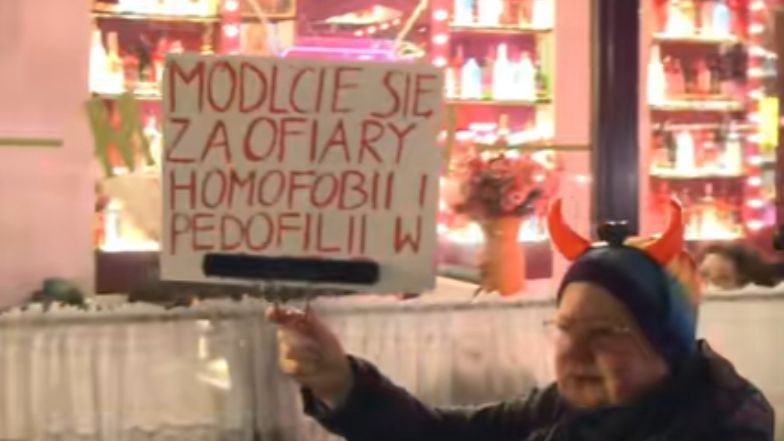 MODLCIE SIĘ
ZA OFIARY
HOMOFOBII I
PEDOFILII W